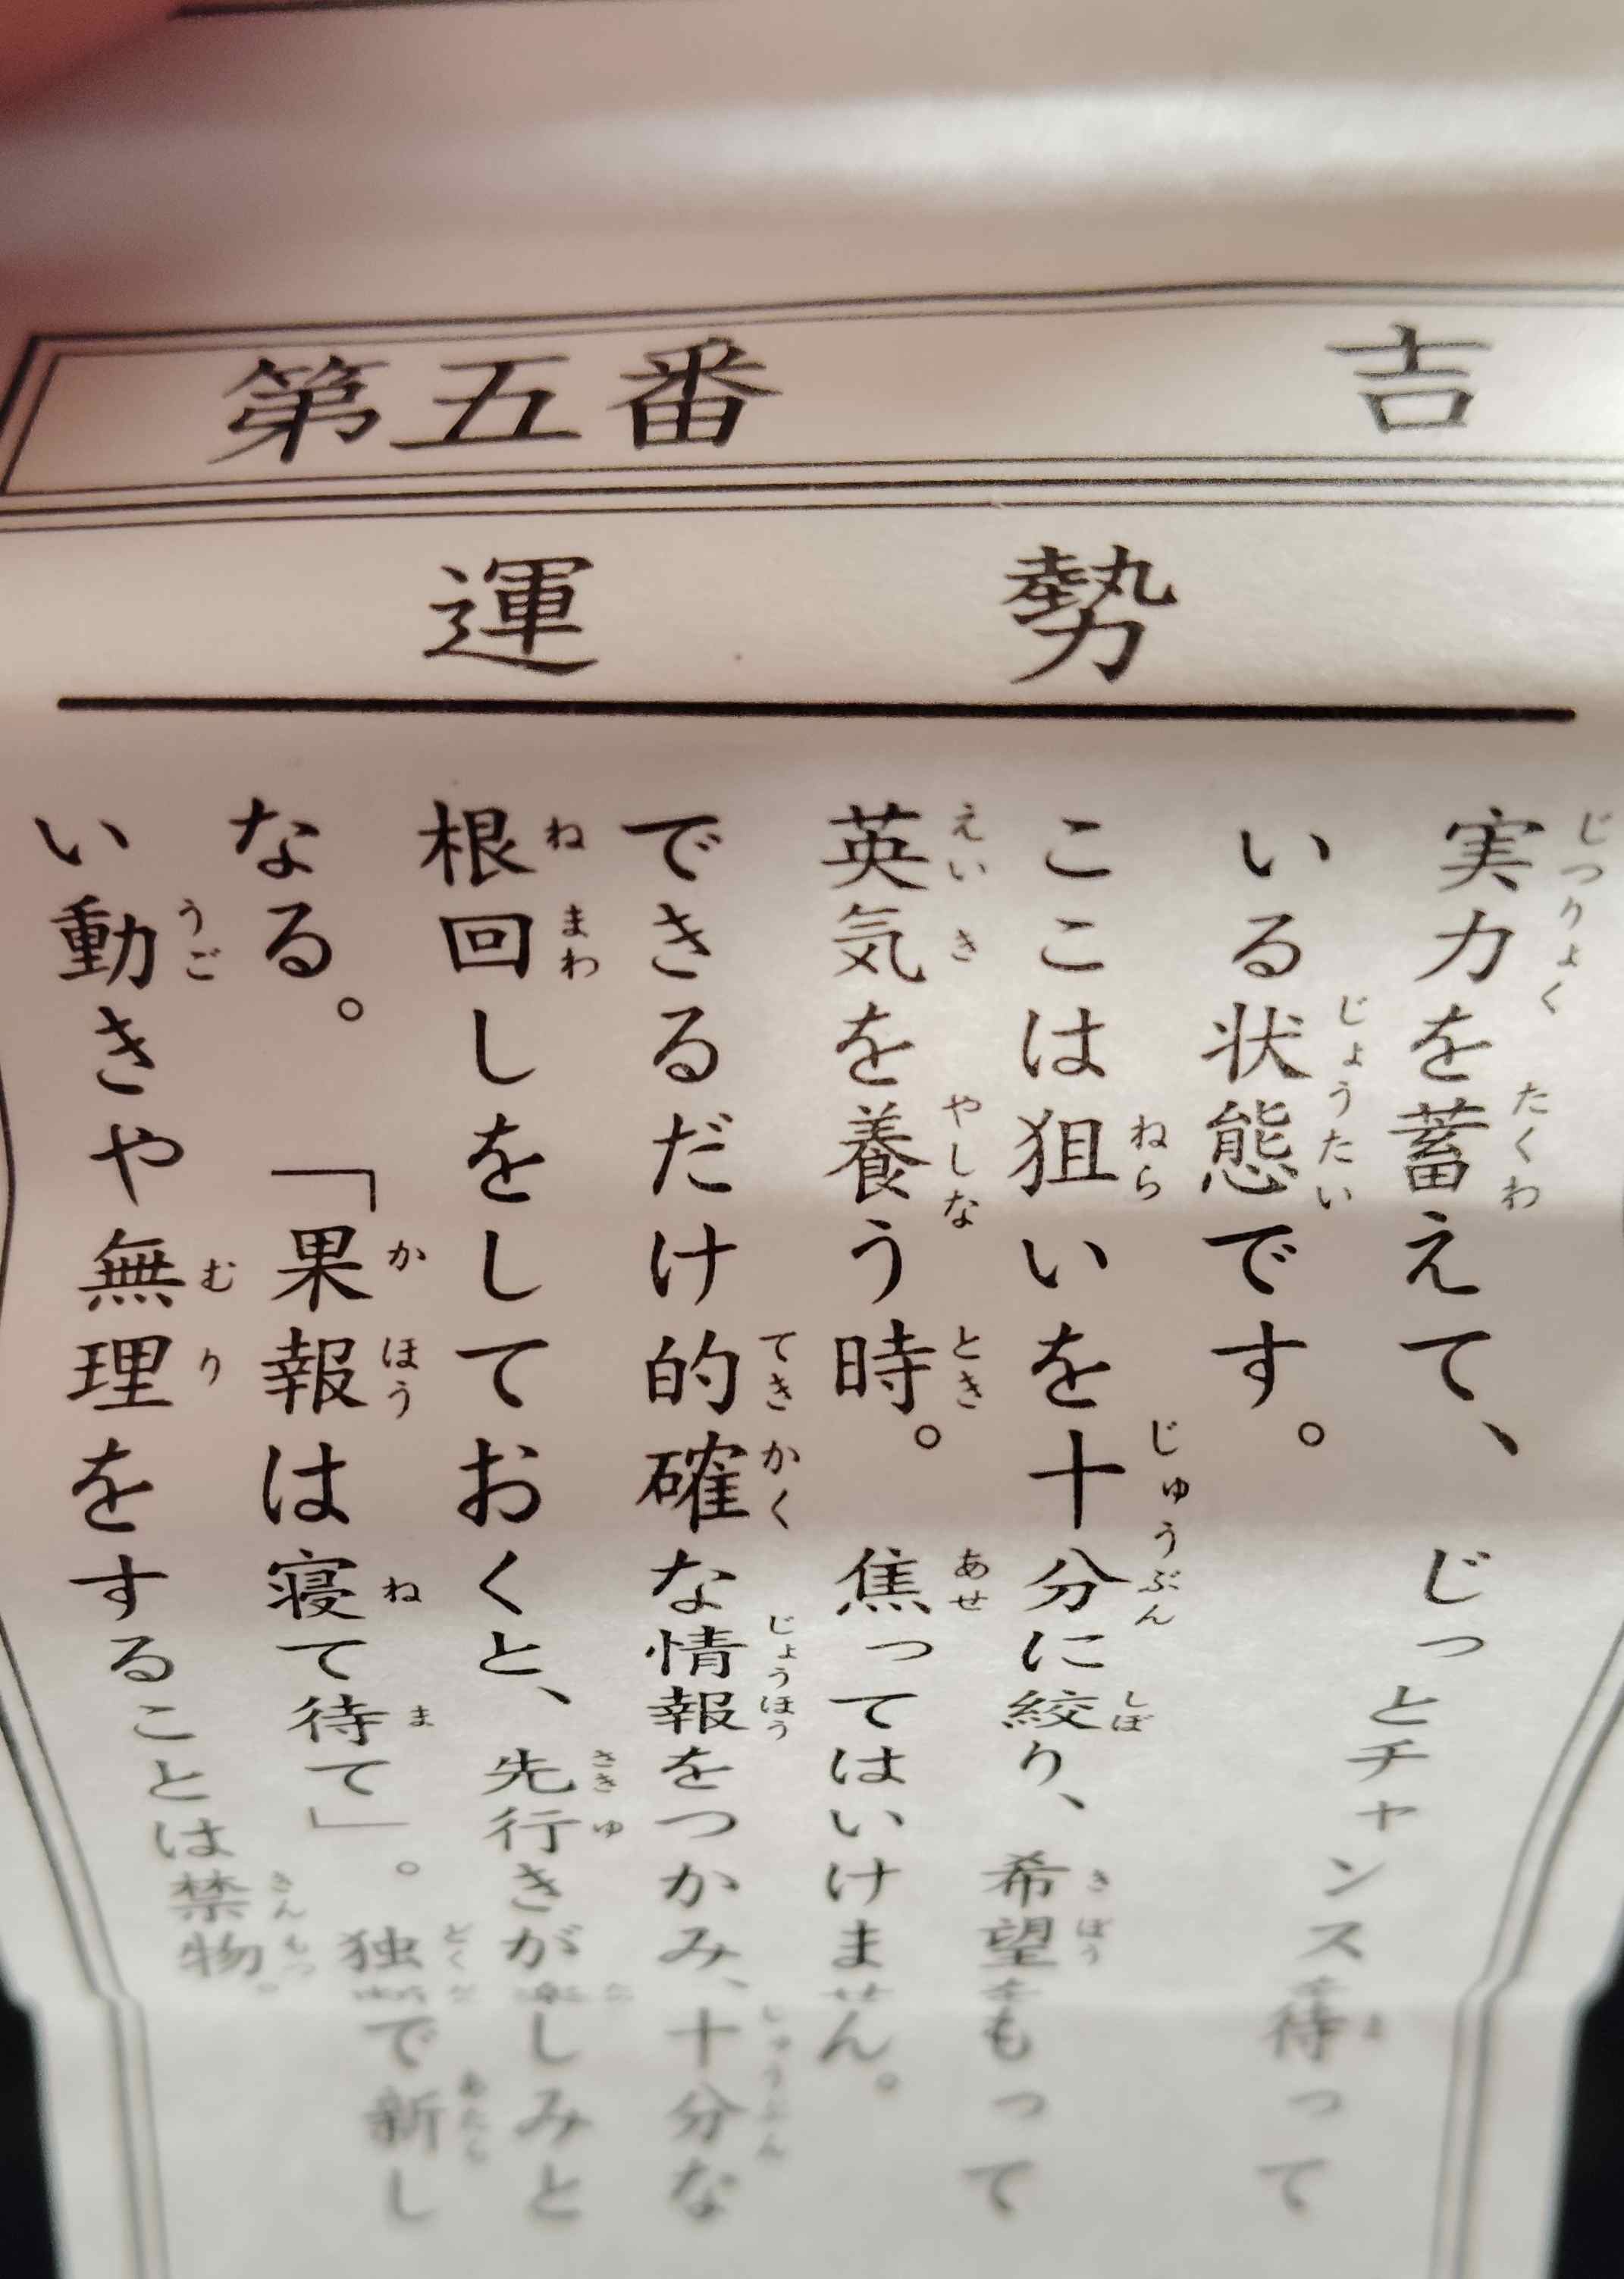 第五番 吉
運勢
実力を蓄えて、じっとチャンスを待って
いる状態です。
ここは狙いを十分に絞り、希望をもって
英気を養う時。焦ってはいけません。
できるだけ的確な情報をつかみ、十分な
根回しをしておくと、先行きが楽しみと
なる。「果報は寝て待て」。独断で新し
い動きや無理をすることは禁物。